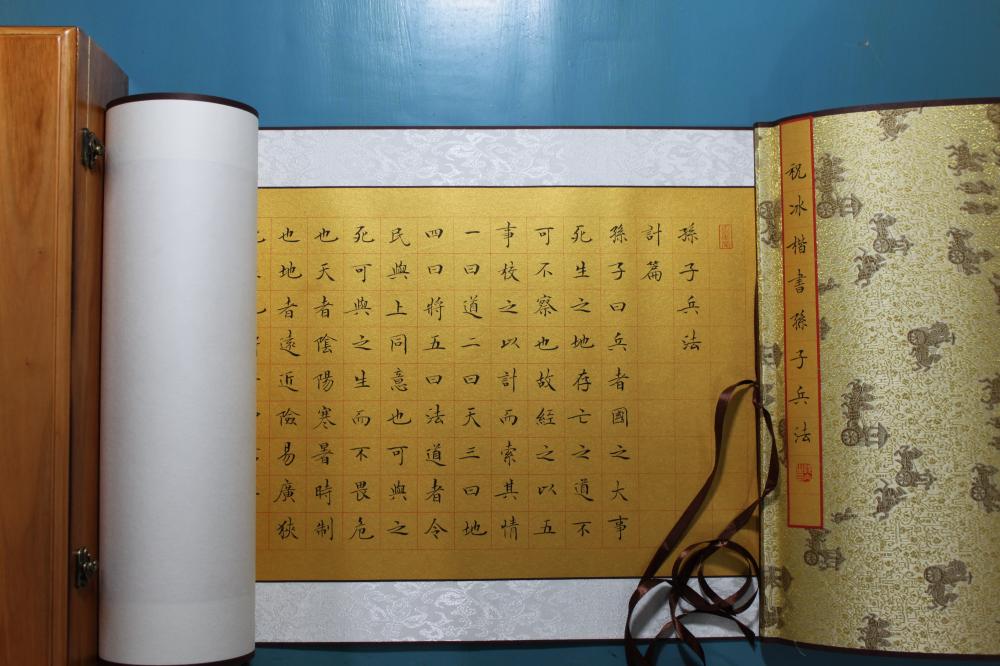 祝冰楷書孫子兵法
孫子兵法
計篇
孫子曰兵者國之大事
死生之地存亡之道不
可不察也故經之以五
事校之以計而索其情
一曰道二曰天三曰地
四曰將五曰法道者令
民與上同意也可與之
死可與之生而不畏危
也天者陰陽寒暑時制
也地者遠近險易廣狹